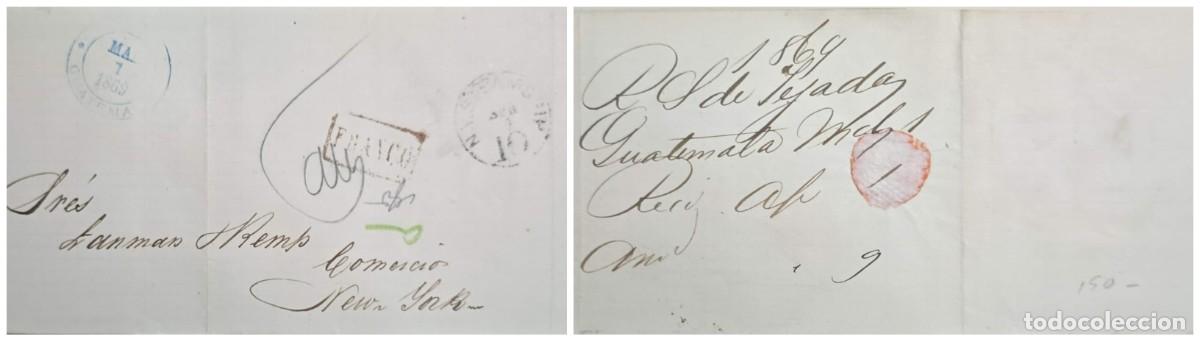 MA.
7
1869
GUATEMALA
FRANCO
N.Y. STEAMSHIP
10
Srés
Lanman & Kemp
Comercio
New-York-
1869
R S de Tejada
Guatemala
Reci Ap 1
9
150-
todocoleccion